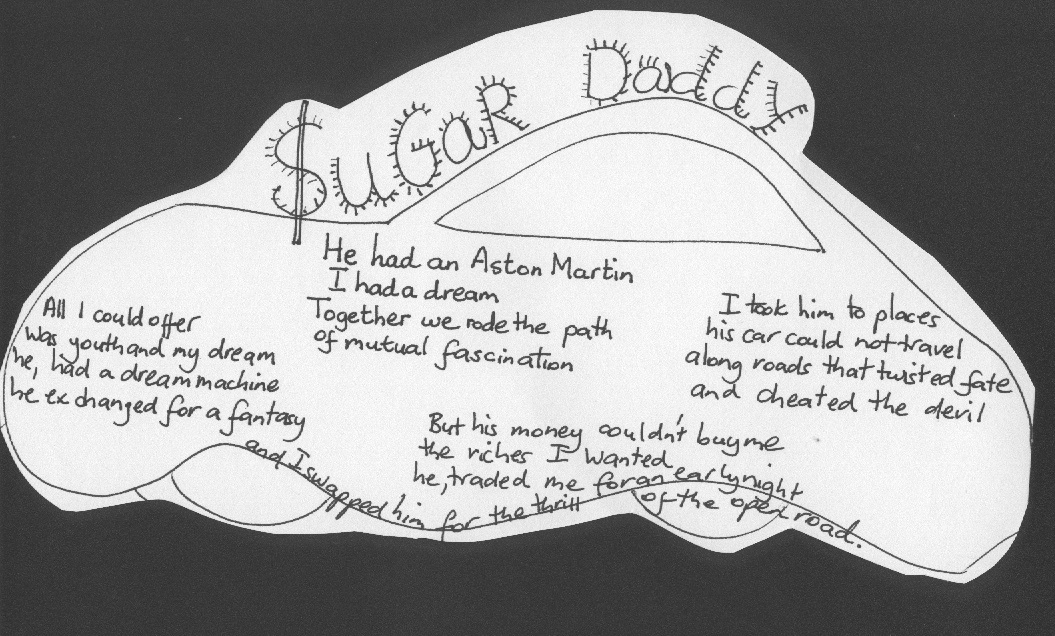 $uGaR Daddy
He had an Aston Martin
I had a dream
Together we rode the path
of mutual fascination
I took him to places
his car could not travel
along roads that twisted fate
and cheated the devil
All I could offer
was youth and my dream
he, had a dream machine
he exchanged for a fantasy
But his money couldn't buy me
the riches I wanted
he, traded me for an early night
and I swapped him for the thrill of the open road.